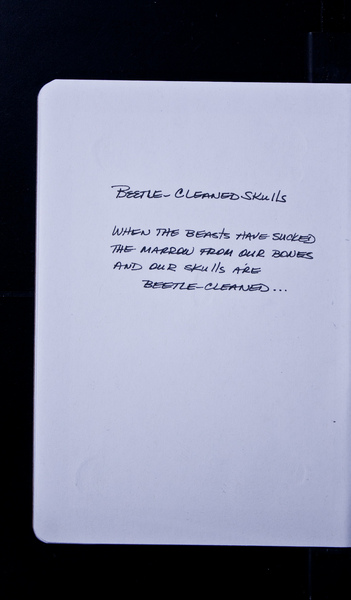 BEETLE-CLEANED SKUllS
WHEN THE BEASTS HAVE SUCKED
THE MARROW FROM OUR BONES
AND OUR SKUllS ARE
BEETLE-CLEANED...